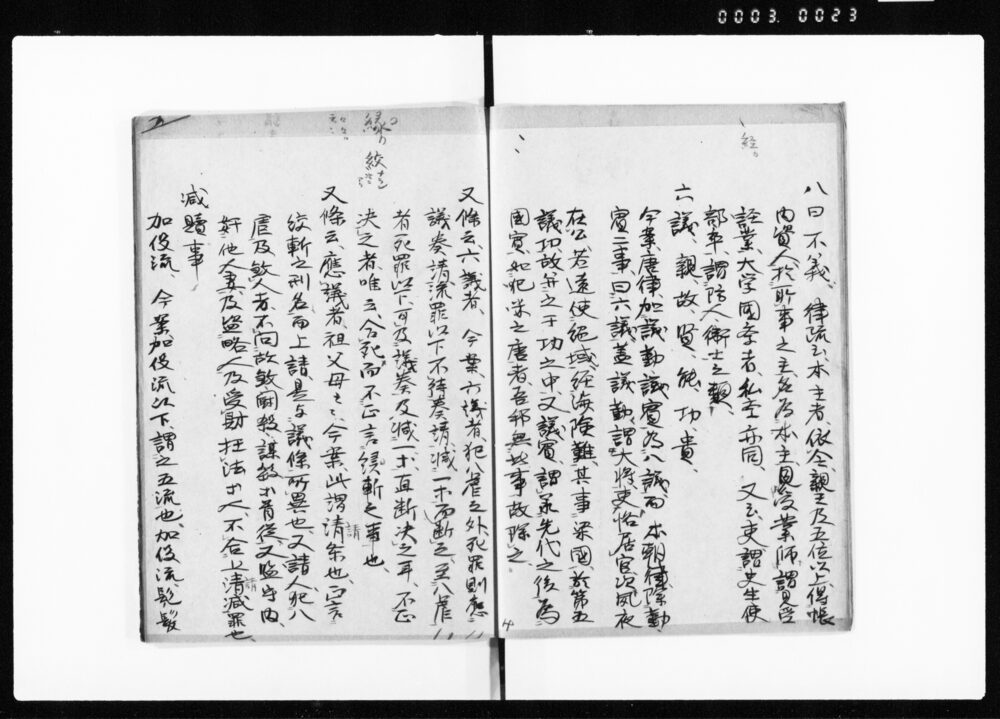 0003.0023
経
八曰不義、律疏云、本主者、依令、親王及五位以上得帳
内資人、於所事之主、名為本主、見受業師、謂見受
経業、大学国学者、私学亦同、又云、吏謂史生使
部卒謂防人衛士之類、
六議、親、故、賢、能、功、貴
今案、唐律加議勤議賓為八議、而本朝律除勤
賓二事曰六議、蓋議勤、謂大将吏恪居官次夙夜
在公、若遠使絶域、経海険難、其事
議功故并之于功之中、又議賓謂承先代之後為
国賓、
又條云、六議者、今案、六議者、犯八虐之外、死罪則
議奏請、流罪以下不待奏請、減一等而断之、至八虐
者、死罪以下、可及議奏及減一等、直断決之耳、不正
決之者、唯云合死而不正言絞斬之事也、
又條云、應議者祖父母云々、今案、此謂請条也、
絞斬之刑名而上請、是与議條所異也、又請人犯八
虐及殺人者、不問故殺闘殺、謀殺等首従、又監守内
奸他人妻、及盗略人及受財枉法等人、不合上請減罪也、
請
請
減贖事
加役流、今案加役流以下、謂之五流也、加役流、
緑
絞